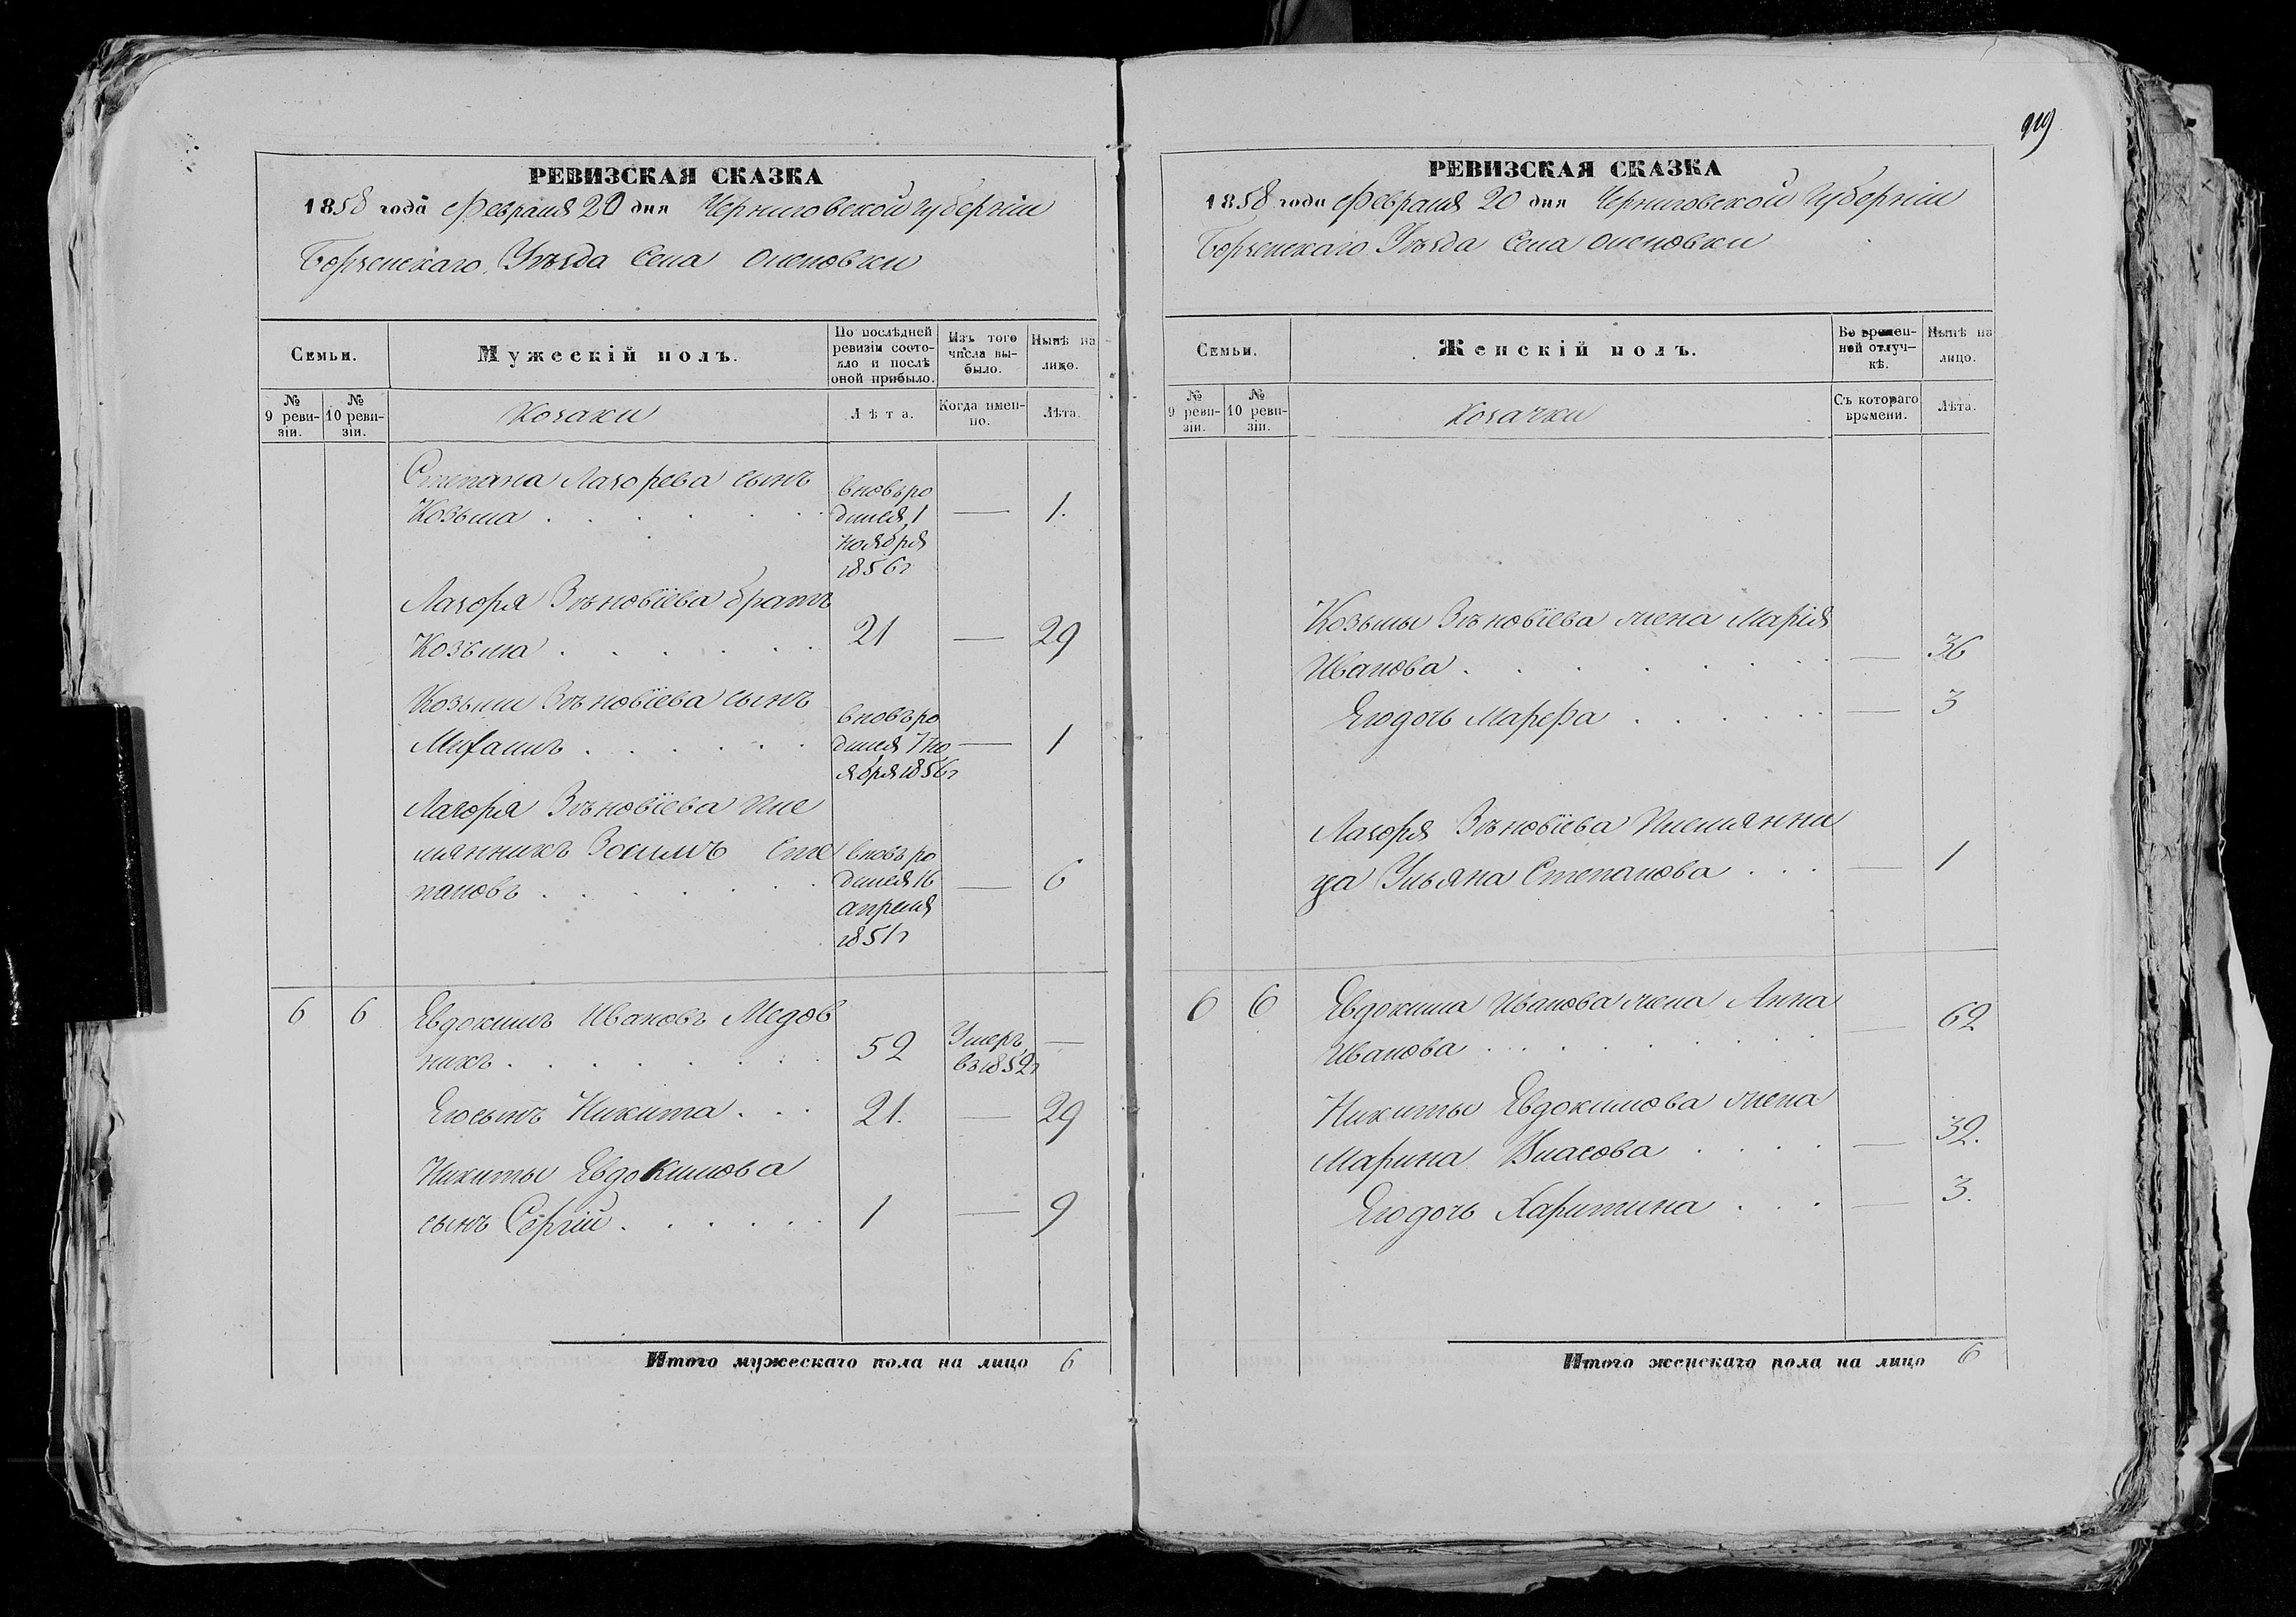 РЕВИЗСКАЯ СКАЗКА
1858 года Февраля 20 дня Черниговской губерніи
Борзенскаго Уѣзда Села Оленовки
Семьи.
Мужескій полъ.
По послѣдней ревизіи состояло и послѣ оной прибыло.
Изъ того числа выбыло.
Нынѣ на лицо.
№ 9 ревизіи.
№ 10 ревизіи.
Козаки
Лѣта.
Когда именно.
Лѣта.
Степана Лазорева сынъ
Козьма . . . . . . вновь родился 1 ноября 1856г — 1.
Лазоря Зѣновіева братъ
Козьма . . . . . . 21 — 29
Козьмы Зѣновіева сынъ
Михаилъ . . . . . вновь родился 7 ноября 1856г — 1
Лазоря Зѣновіева пле
мянникъ Зосимъ Сте
пановъ . . . . . . вновь родился 16 апреля 1851г — 6
6 6 Евдокимъ Ивановъ Медов
никъ . . . . . . . 52 Умеръ въ 1852г —
Его сынъ Никита . . . 21. — 29
Никиты Евдокимова
сынъ Сергій . . . . . . 1 — 9
Итого мужескаго пола на лицо 6
919
РЕВИЗСКАЯ СКАЗКА
1858 года Февраля 20 дня Черниговской Губерніи
Борзенскаго Уѣзда Села Оленовки
Семьи.
Женскій полъ.
Во временной отлучкѣ.
Нынѣ на лицо.
№ 9 ревизіи.
№ 10 ревизіи.
Козачки
Съ котораго времени.
Лѣта.
Козьмы Зѣновіева жена Марія
Иванова . . . . . . . — 36
Его дочь Марфа . . . . . — 3
Лазоря Зѣновіева племянни
ца Ульяна Степанова . . . — 1
6 6 Евдокима Иванова жена Анна
Иванова . . . . . . . . — 62
Никиты Евдокимова жена
Марина Власова . . . . — 32.
Его дочь Харитина . . . — 3.
Итого женскаго пола на лицо 6